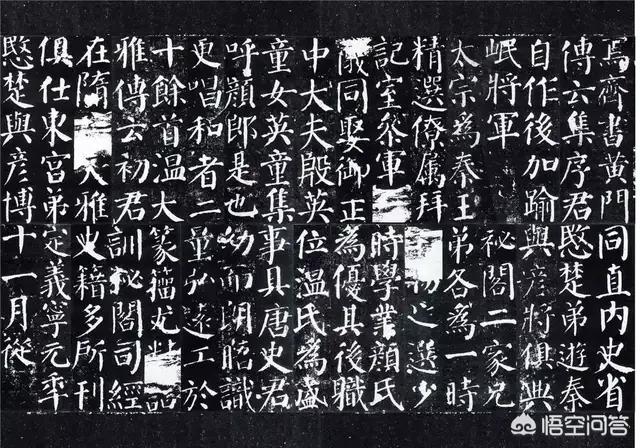 焉齊書黃門
傳云集序君
自作後加踰
岷將軍
太宗為秦王
精選僚属拜
記室叅軍
儀同娶御正
中大夫殷英
童女英童集
呼顏郎是也
更唱和者二
十餘首温大
雅傳云初君
在隋大雅
俱仕東宮弟
愍楚與彦博
同直内史省
愍楚弟遊秦
與彦將俱典
祕閣二家兄
弟各為一時
之選少
時學業顏氏
為優其後職
位温氏為盛
事具唐史君
幼而朗晤識
量弘遠工於
篆籀尤精詁
訓祕閣司經
史籍多所刊
定義寧元年
十一月從
悟空问答